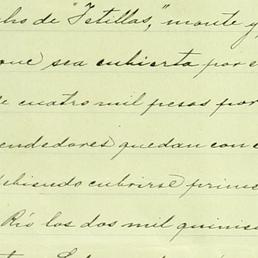 ho de "Istillas," monte y
que sea cubierta por e
e cuatro mil pesos por
endedores quedan con
ebiendo cubrirse prime
Río los dos mil quinie